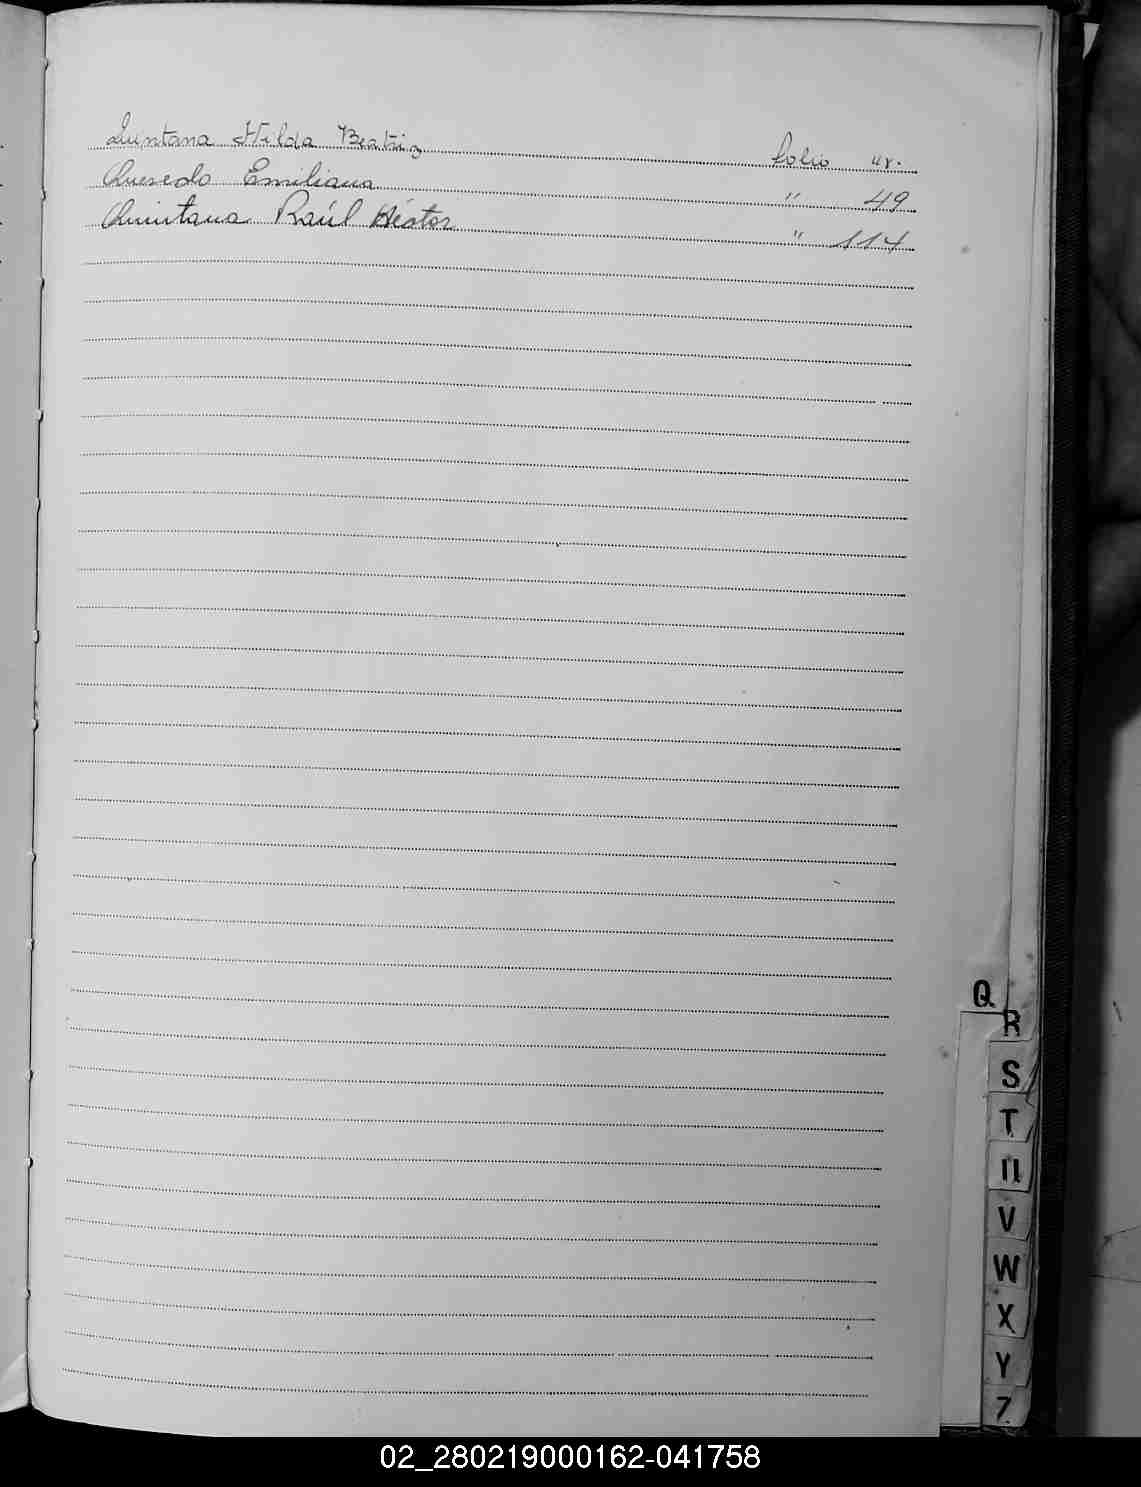 Quintana Hilda Beatriz folio 48.
Quesedo Emiliana " 49
Quintana Raúl Héctor " 114
Q
R
S
T
U
V
W
X
Y
Z
02_280219000162-041758